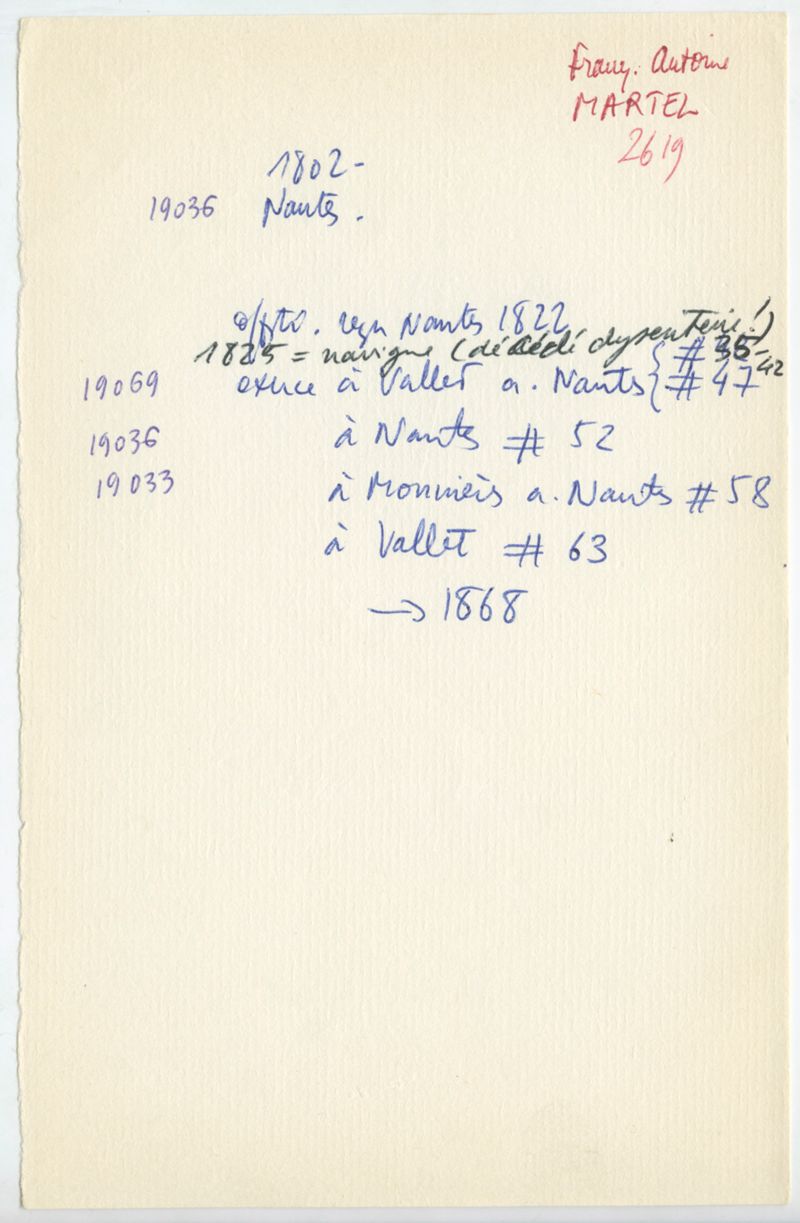 Franç. Antoine
MARTEL
2619
1802-
19036 Nantes.
offto. reçu Nantes 1822
1825 = navigue (décédé dysenterie!)
# 35-42
19069 exerce à Vallet a. Nantes # 47
19036 à Nantes # 52
19033 à Monnières a. Nantes # 58
à Vallet # 63
→ 1868